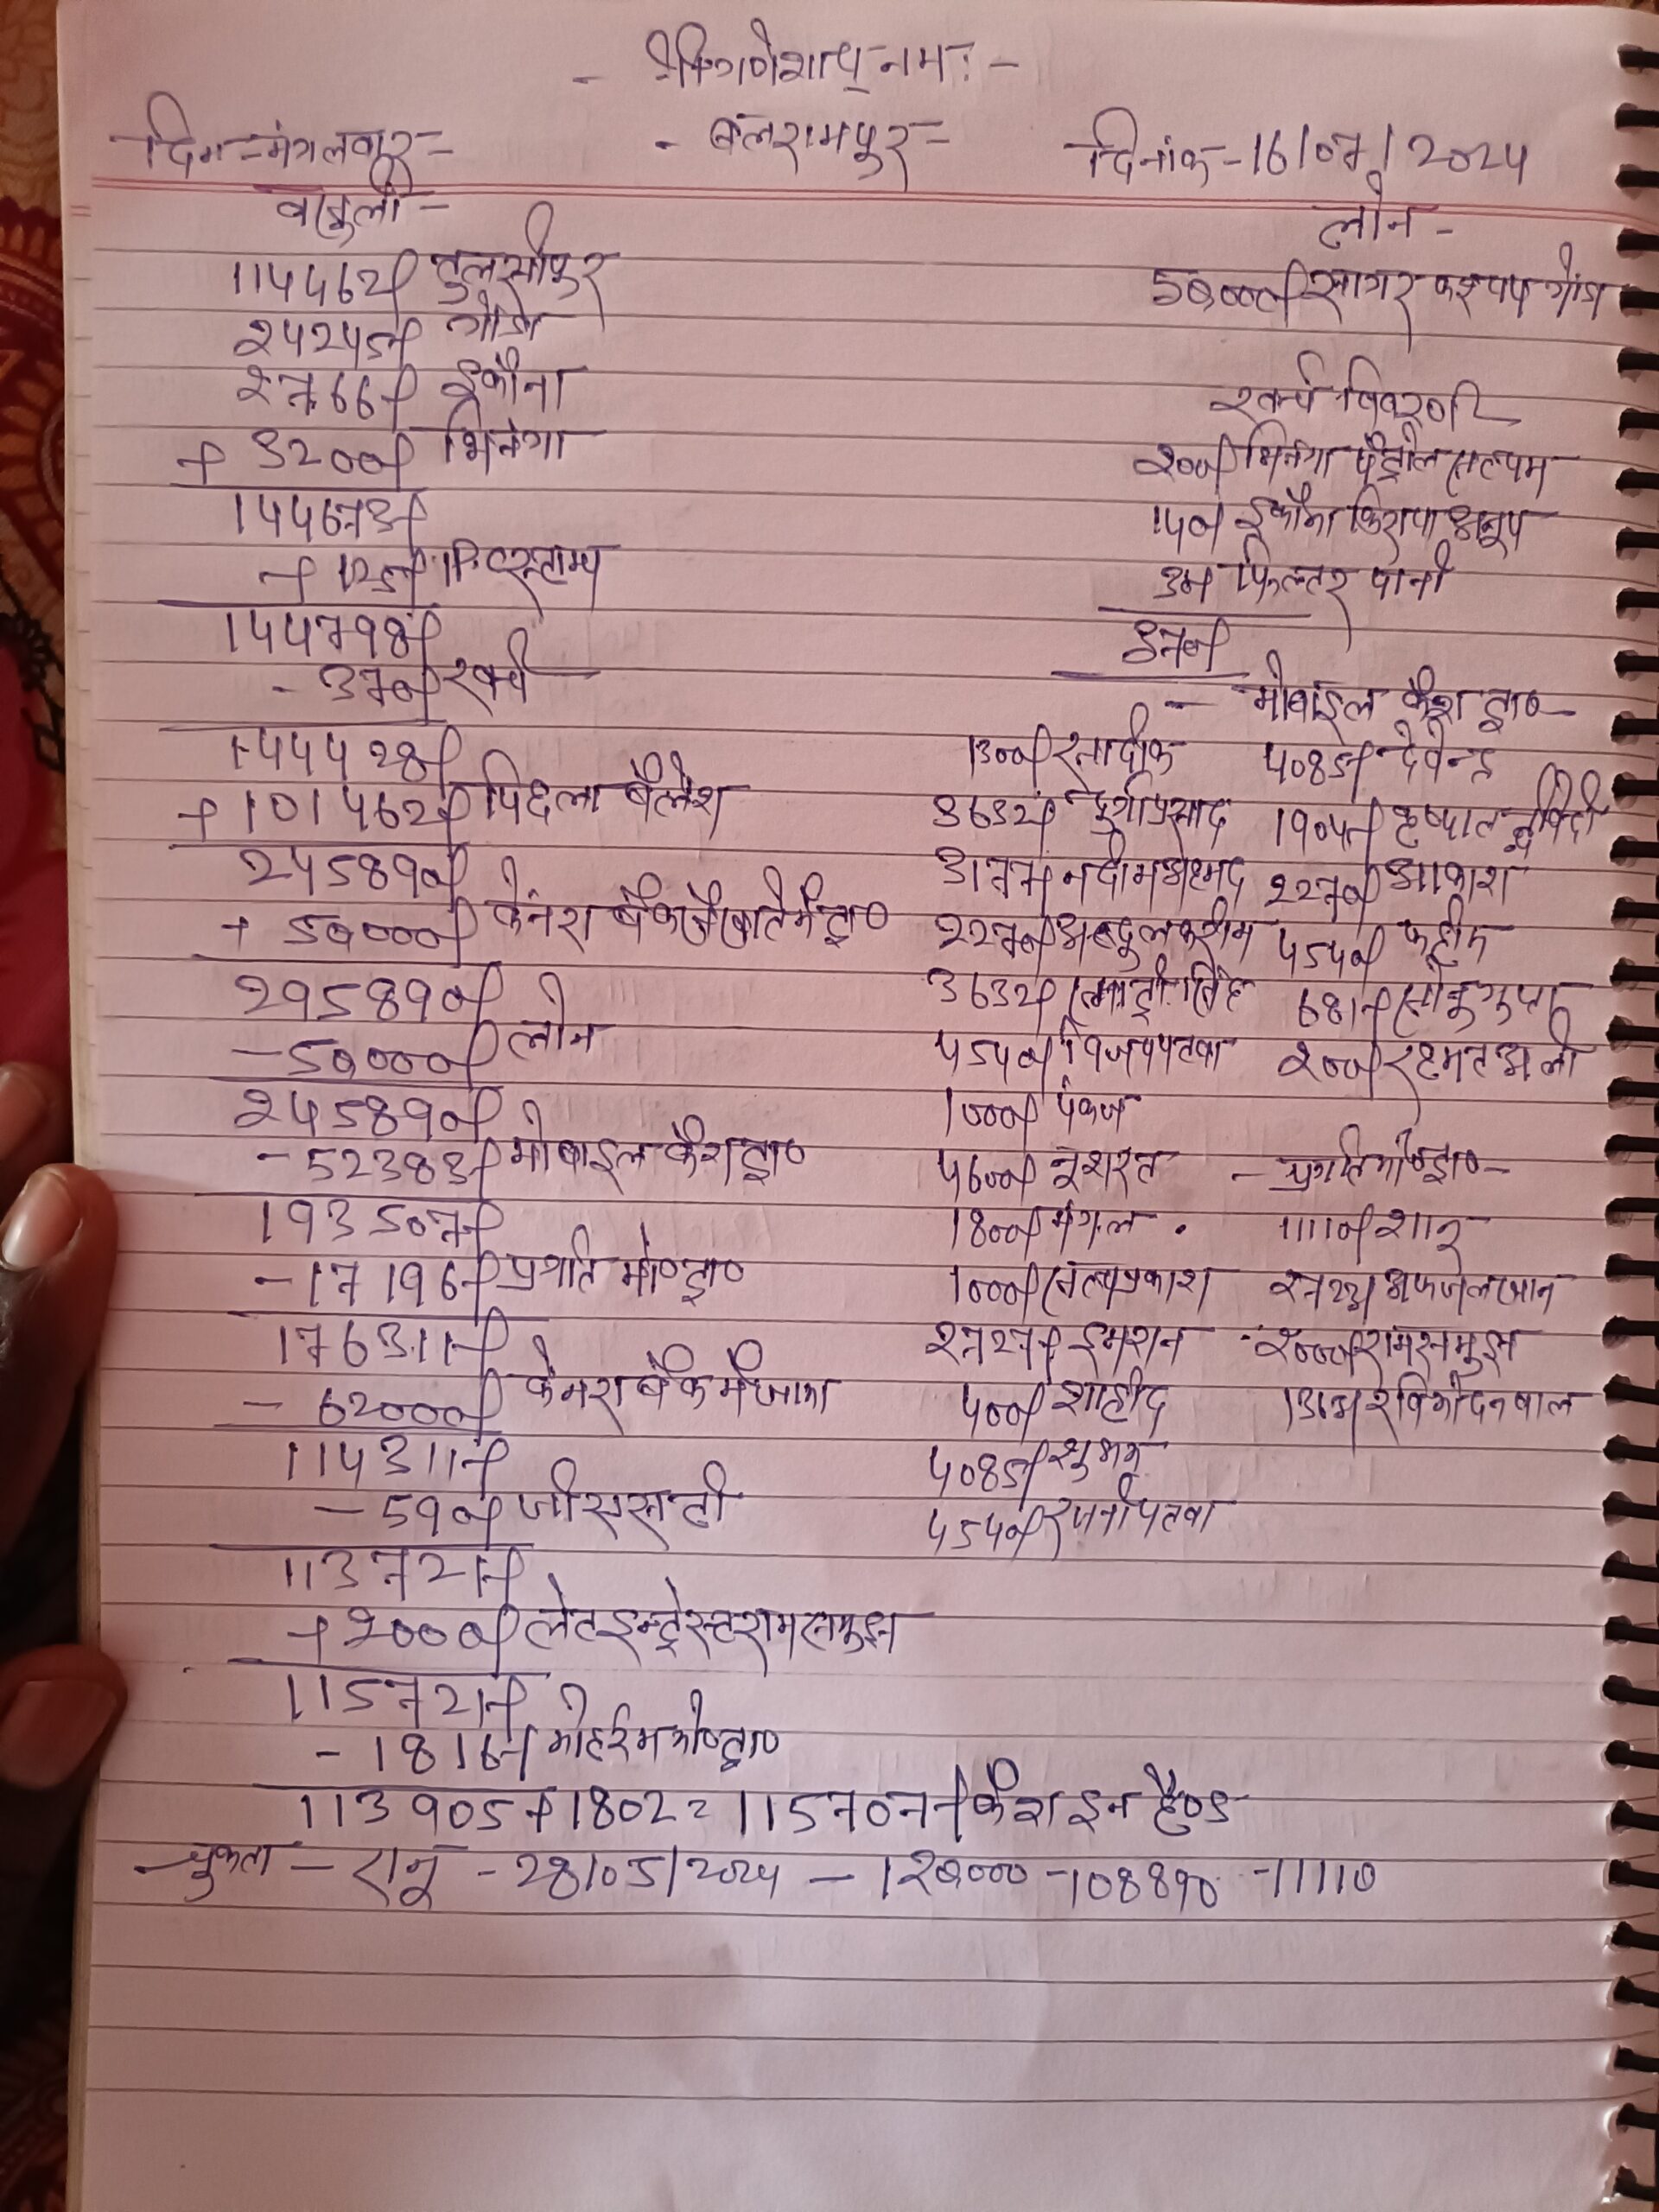 - श्री गणेशाय् नमः -
दिन - मंगलवार - - बलरामपुर - दिनांक - 16/07/2024
वसुली - लोन -
114462/- तुलसीपुर 50,000/- सागर कश्यप गोंडा
24245/- गोंडा
2766/- ईकौना खर्च विवरण
+ 3200/- भिनगा 200/- भिनगा पेट्रोल सत्यम
144673/- 140/- ईकौना किराया अनूप
+ 125/- टिस्टाम्प 30/- फिल्टर पानी
144798/- 370/-
- 370/- खर्च - मोबाइल कैश ट्रा० -
144428/- 1300/- सादीक 4085/- देवेन्द्र
+ 101462/- पिछला बैलेंश 3632/- दुर्गाप्रसाद 1904/- द्विवेदी
245890/- 3177/- नदीम अहमद 2270/- आकाश
+ 50,000/- केनरा बैंक खाते में ट्रा० 2270/- अब्दुल करीम 4540/- फहीम
295890/- 3632/- सिंह 681/- सोनु गुप्ता
- 50,000/- लोन 4540/- विजय पटवा 200/- रहमत अली
245890/- 1000/- पंकज
- 52383/- मोबाइल कैश ट्रा० 4600/- नुशरत - प्रगति मो० ट्रा० -
193507/- 1800/- मंगल 11110/- शानु
- 17196/- प्रगति मो० ट्रा० 1000/- सत्यप्रकाश 2723/- अफजल खान
176311/- 2727/- इमरान 2000/- रामसमुझ
- 62000/- केनरा बैंक में जमा 400/- शाहीद 1363/- रवि
114311/- 4085/- शुभम
- 590/- जीएसटी 4540/- रजनी पटवा
113721/-
+ 2000/- लेट इन्ट्रेस्ट रामसमुझ
115721/-
- 1816/- मोहर्रम मो० ट्रा०
113905 + 1802 = 115707/- कैश इन हैण्ड
चुकता - शानू - 28/05/2024 - 120000 - 108890 - 11110